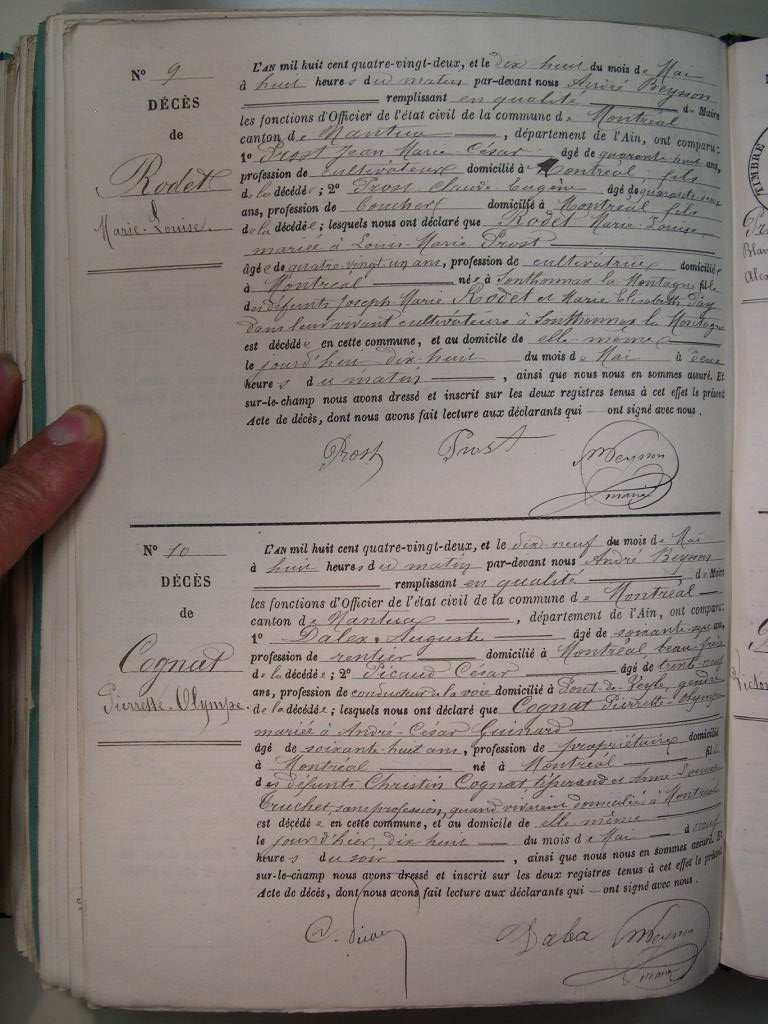 N° 9
DÉCÈS
de
Rodet
Marie-Louise.
L'AN mil huit cent quatre-vingt-deux, et le dix huit du mois de Mai
à huit heures du matin par-devant nous André Beysson
remplissant en qualité de Maire
les fonctions d'Officier de l'état civil de la commune de Montréal
canton de Nantua, département de l'Ain, ont comparu:
1° Prost Jean Marie César âgé de quarante huit ans,
profession de cultivateur domicilié à Montréal, fils
de la décédée; 2° Prost Claude Eugène âgé de quarante
ans, profession de boucher domicilié à Montréal fils
de la décédée; lesquels nous ont déclaré que Rodet Marie-Louise
mariée à Louis-Marie Prost
âgée de quatre-vingt un ans, profession de cultivatrice domiciliée
à Montréal née à Sonthonnax la Montagne fille
des défunts Joseph Marie Rodet et Marie Elisabeth
dans leur vivant cultivateurs à Sonthonnax la Montagne
est décédée en cette commune, et au domicile de elle même
le jourd'hui dix huit du mois de Mai à deux
heures du matin, ainsi que nous nous en sommes assuré. Et
sur-le-champ nous avons dressé et inscrit sur les deux registres tenus à cet effet le présent
Acte de décès, dont nous avons fait lecture aux déclarants qui — ont signé avec nous.
Prost Prost Beysson
maire
N° 10
DÉCÈS
de
Cognat
Pierrette-Olympe.
L'AN mil huit cent quatre-vingt-deux, et le dix neuf du mois de Mai
à huit heures du matin par-devant nous André Beysson
remplissant en qualité de Maire
les fonctions d'Officier de l'état civil de la commune de Montréal
canton de Nantua, département de l'Ain, ont comparu:
1° Auguste âgé de soixante ans,
profession de rentier domicilié à Montréal beau frère
de la décédée; 2° Picaud César âgé de trente neuf
ans, profession de conducteur de la voie domicilié à Pont-de-Veyle, gendre
de la décédée; lesquels nous ont déclaré que Cognat Pierrette-Olympe
mariée à André-César Guinard
âgé de soixante huit ans, profession de propriétaire domicilié
à Montréal né à Montréal fille
des défunts Christin Cognat, tisserand et Anne Louise
Truchet, sans profession, quand vivaient domiciliés à Montréal
est décédée en cette commune, et au domicile de elle même
le jour d'hier, dix huit du mois de Mai à neuf
heures du soir, ainsi que nous nous en sommes assuré. Et
sur-le-champ nous avons dressé et inscrit sur les deux registres tenus à cet effet le présent
Acte de décès, dont nous avons fait lecture aux déclarants qui — ont signé avec nous.
Beysson
maire
TIMBRE